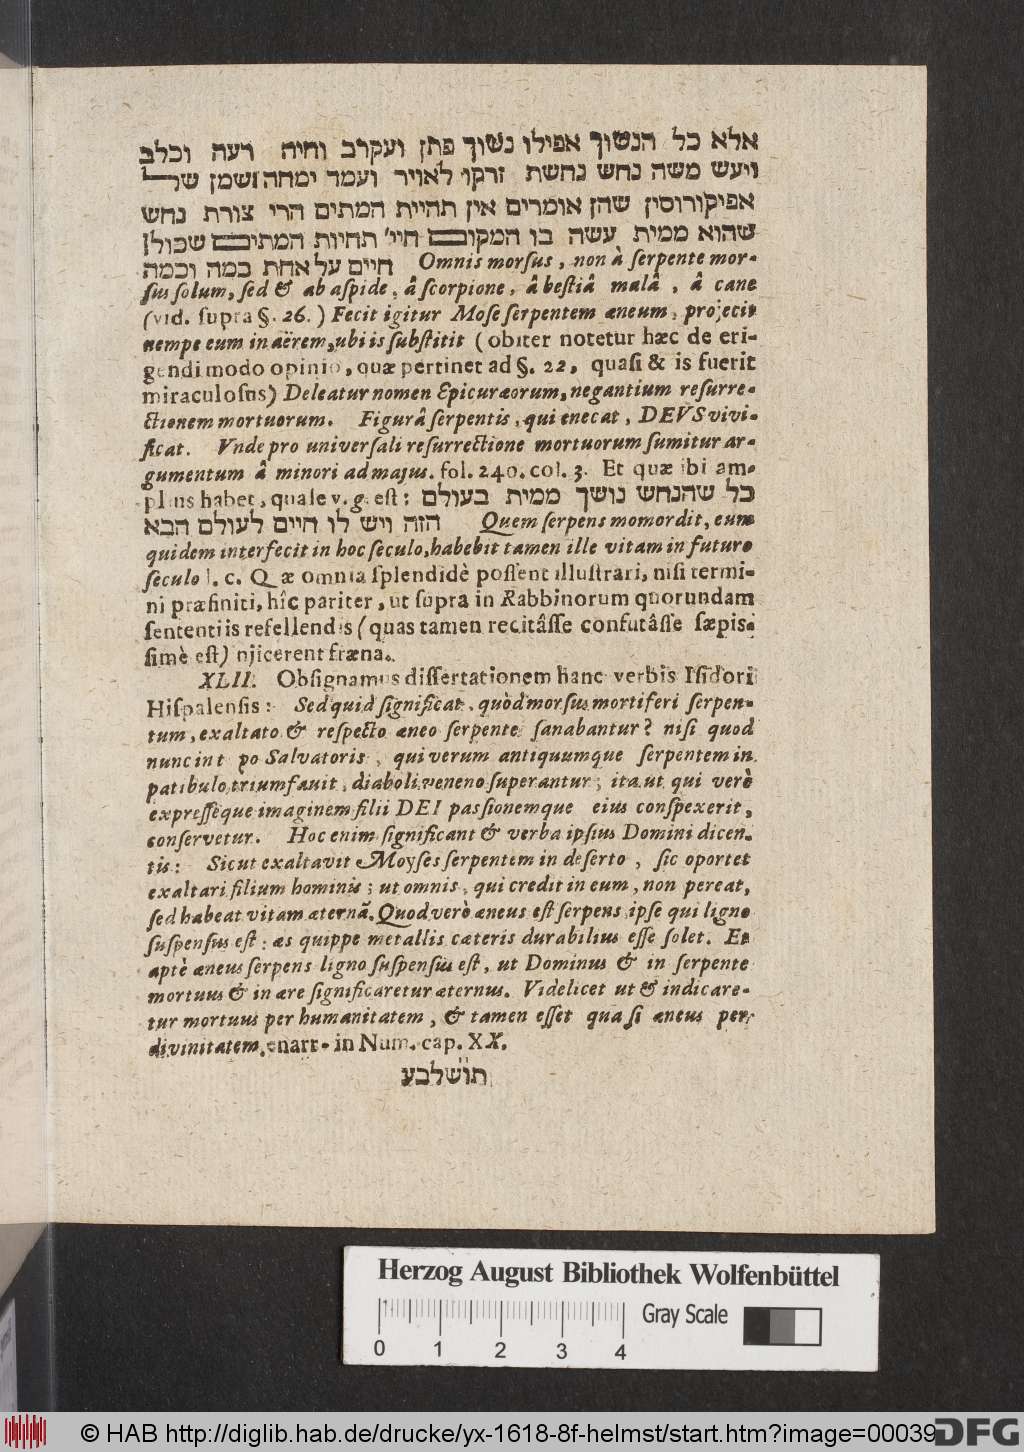 אלא כל הנשוך אפילו נשוך פתן ועקרב וחיה רעה וכלב
ויעש משה נחש נחשת זרקו לאויר ועמד ימחה ושמן של
אפיקורוסין שהן אומרים אין תהיית המתים הרי צורת נחש
שהוא ממית עשה בו המקום חיי׳ תחיות המתים שכולן
חיים על אחת כמה וכמה Omnis morsus, non à serpente mor-
sus solum, sed & ab aspide, â scorpione, â bestiâ malâ, â cane
(vid. supra §. 26.) Fecit igitur Mose serpentem æneum, projecit
nempe eum in aërem, ubi is substitit (obiter notetur hæc de eri-
gendi modo opinio, quæ pertinet ad §. 22, quasi & is fuerit
miraculosus) Deleatur nomen Epicuræorum, negantium resurre-
ctionem mortuorum. Figurâ serpentis, qui enecat, DEVS vivi-
ficat. Vnde pro universali resurrectione mortuorum sumitur ar-
gumentum â minori ad majus. fol. 240. col. 3. Et quæ ibi am-
plius habet, quale v. g. est: כל שהנחש נושך ממית בעולם
הזה ויש לו חיים לעולם הבא Quem serpens momordit, eum
quidem interfecit in hoc seculo, habebit tamen ille vitam in futuro
seculo l. c. Quæ omnia splendidè possent illustrari, nisi termi-
ni præfiniti, hîc pariter, ut supra in Rabbinorum quorundam
sententiis refellendis (quas tamen recitâsse confutâsse sæpis-
simè est) injicerent fræna.
XLII. Obsignamus dissertationem hanc verbis Isidori
Hispalensis: Sed quid significat, quòd morsus mortiferi serpen-
tum, exaltato & respecto æneo serpente sanabantur? nisi quod
nunc in typo Salvatoris, qui verum antiquumque serpentem in
patibulo triumfauit, diaboli veneno superantur; ita ut qui verè
expressèque imaginem filii DEI passionemque eius conspexerit,
conservetur. Hoc enim significant & verba ipsius Domini dicen-
tis: Sicut exaltavit Moyses serpentem in deserto, sic oportet
exaltari filium hominis; ut omnis, qui credit in eum, non pereat,
sed habeat vitam æternã. Quod verò æneus est serpens ipse qui ligno
suspensus est: æs quippe metallis cæteris durabilius esse solet. Et
aptè æneus serpens ligno suspensus est, ut Dominus & in serpente
mortuus & in ære significaretur æternus. Videlicet ut & indicare-
tur mortuus per humanitatem, & tamen esset quasi æneus per
divinitatem. enarr. in Num. cap. XX.
תושלבע
Herzog August Bibliothek Wolfenbüttel
Gray Scale
0 1 2 3 4
© HAB http://diglib.hab.de/drucke/yx-1618-8f-helmst/start.htm?image=00039
DFG